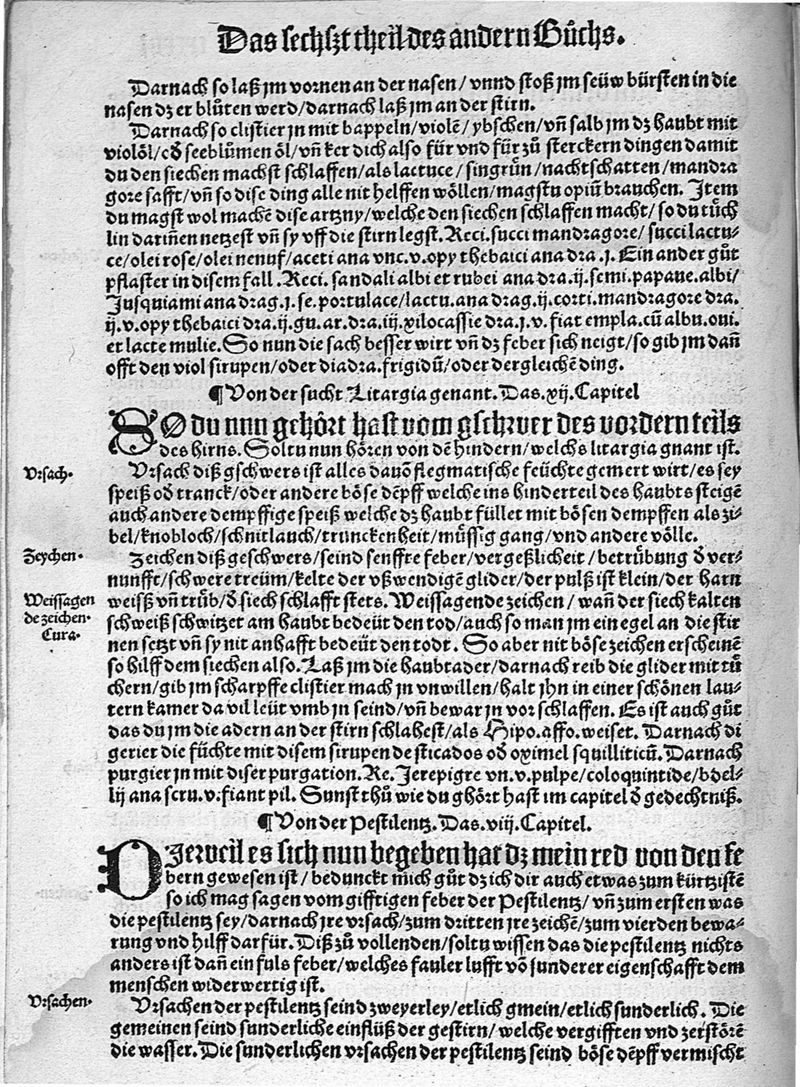 Das sechszt theil des andern Bůchs.
Darnach so laß jm vornen an der nasen/ vnnd stoß jm seüw bürsten in die
nasen dz er blůten werd/darnach laß jm an der stirn.
Darnach so clistier jn mit bappeln/violẽ/ ybschen/ vñ salb im dz haubt mit
violöl/ oď seeblůmen öl/ vñ ker dich also für vnd für zů sterckern dingen damit
du den siechen machst schlaffen/als lactuce/ singrün/nachtschatten/mandra
gore safft/vñ so dise ding alle nit helffen wöllen/magstu opiũ brauchen. Jtem
du magst wol machẽ dise artzny/welche den siechen schlaffen macht/ so du tüch
lin dariñen netzest vñ sy vff die stirn legst. Reci. succi mandragore/ succi lactu⸗
ce/olei rose/olei nenuf/aceti ana vnc. v. opy thebaici ana dra. j. Ein ander gůt
pflaster in disem fall. Reci. sandali albi et rubei ana dra. ij. semi. papaue. albi/
Jusquiami ana drag. j. se. portulace/lactu. ana drag. ij. corti. mandragore dra.
ij. v. opy thebaici dra. ij. gu. ar. dra. iij. xilocassie dra. j. v. fiat empla. cũ albu. oui.
et lacte mulie. So nun die sach besser wirt vñ dz feber sich neigt/so gib jm dañ
offt den viol sirupen/oder diadra. frigidũ/oder dergleichẽ ding.
¶Von der sucht Litargia genant. Das. xij. Capitel
SO du nun gehört hast vom gschwer des vordern teils
des hirns. Soltu nun hören von dẽ hindern/welchs litargia gnant ist.
Vrsach.
Vrsach diß gschwers ist alles dauõ flegmatische feüchte gemert wirt/es sey
speiß oď tranck/oder andere böse dẽpff welche ins hinderteil des haubts steigẽ
auch andere dempffige speiß welche dz haubt füllet mit bösen dempffen als zi⸗
bel/knobloch/schnitlauch/trunckenheit/müssig gang/vnd andere völle.
Zeychen.
Zeichen diß geschwers/seind senffte feber/vergeßlicheit/betrübung ď ver⸗
nunfft/schwere treüm/kelte der vßwendigẽ glider/der pulß ist klein/der harn
Weissagen
de zeichen.
Cura.
weisß vñ trüb/ď siech schlafft stets. Weissagende zeichen/ wañ der siech kalten
schweiß schwitzet am haubt bedeüt den tod/auch so man im ein egel an die stir
nen setzt vñ sy nit anhafft bedeüt den todt. So aber nit böse zeichen erscheinẽ
so hilff dem siechen also. Laß jm die haubtader/darnach reib die glider mit tü
chern/gib jm scharpffe clistier mach jn vnwillen/halt jhn in einer schönen lau⸗
tern kamer da vil leüt vmb in seind/vñ bewar jn vor schlaffen. Es ist auch gůt
das du jm die adern an der stirn schlahest/als Hipo. affo. weiset. Darnach di
gerier die füchte mit disem sirupen de sticados oď oximel squilliticũ. Darnach
purgier jn mit diser purgation. Re. Jerepigre vn. v. pulpe/coloquintide/bdel⸗
lij ana scru. v. fiant pil. Sunst thů wie du ghört hast im capitel ď gedechtniß.
¶Von der Pestilentz. Das. viij. Capitel.
DJerweil es sich nun begeben hat dz mein red von den fe
bern gewesen ist/ bedunckt mich gůt dz ich dir auch etwas zum kürtzistẽ
so ich mag sagen vom gifftigen feber der Pestilentz/ vñ zum ersten was
die pestilentz sey/darnach jre vrsach/zum dritten jre zeichẽ/zum vierden bewa⸗
rung vnd hilff darfür. Diß zů vollenden/soltu wissen das die pestilentz nichts
anders ist dañ ein fuls feber/welches fauler lufft võ sunderer eigenschafft dem
menschen widerwertig ist.
Vrsachen.
Vrsachen der pestilentz seind zweyerley/etlich gmein/etlich sunderlich. Die
gemeinen seind sunderliche einflüß der gestirn/welche vergifften vnd zerstörẽ
die wasser. Die sunderlichen vrsachen der pestilentz seind böse dẽpff vermischt